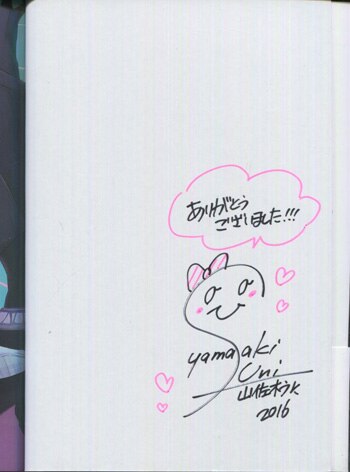 ありがとう
ございました!!!
yamasaki
Uni
山佐木うに
2016